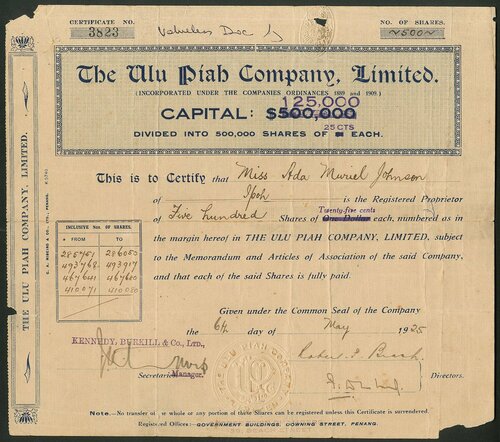 CERTIFICATE NO.
3823
Valueless Dec
NO. OF SHARES.
~500~
The Ulu Piah Company, Limited.
(INCORPORATED UNDER THE COMPANIES ORDINANCES 1889 and 1909.)
125,000
CAPITAL: $500,000
25 CTS
DIVIDED INTO 500,000 SHARES OF EACH.
This is to Certify that Miss Ada Muriel Johnson
of Ipoh is the Registered Proprietor
Twenty-five cents
of Five hundred Shares of One Dollar each, numbered as in
the margin hereof in THE ULU PIAH COMPANY, LIMITED, subject
to the Memorandum and Articles of Association of the said Company,
and that each of the said Shares is fully paid.
Given under the Common Seal of the Company
the 6th day of May 1925
THE ULU PIAH COMPANY, LIMITED.
INCLUSIVE NOS. OF SHARES.
FROM TO
285751 286050
493768 493917
467641 467680
410071 410080
KENNEDY, BURKILL & Co., LTD.,
Secretaries
Manager.
THE ULU PIAH COMPANY
Directors.
Note.—No transfer of the whole or any portion of these Shares can be registered unless this Certificate is surrendered.
Registered Offices: GOVERNMENT BUILDINGS, DOWNING STREET, PENANG.